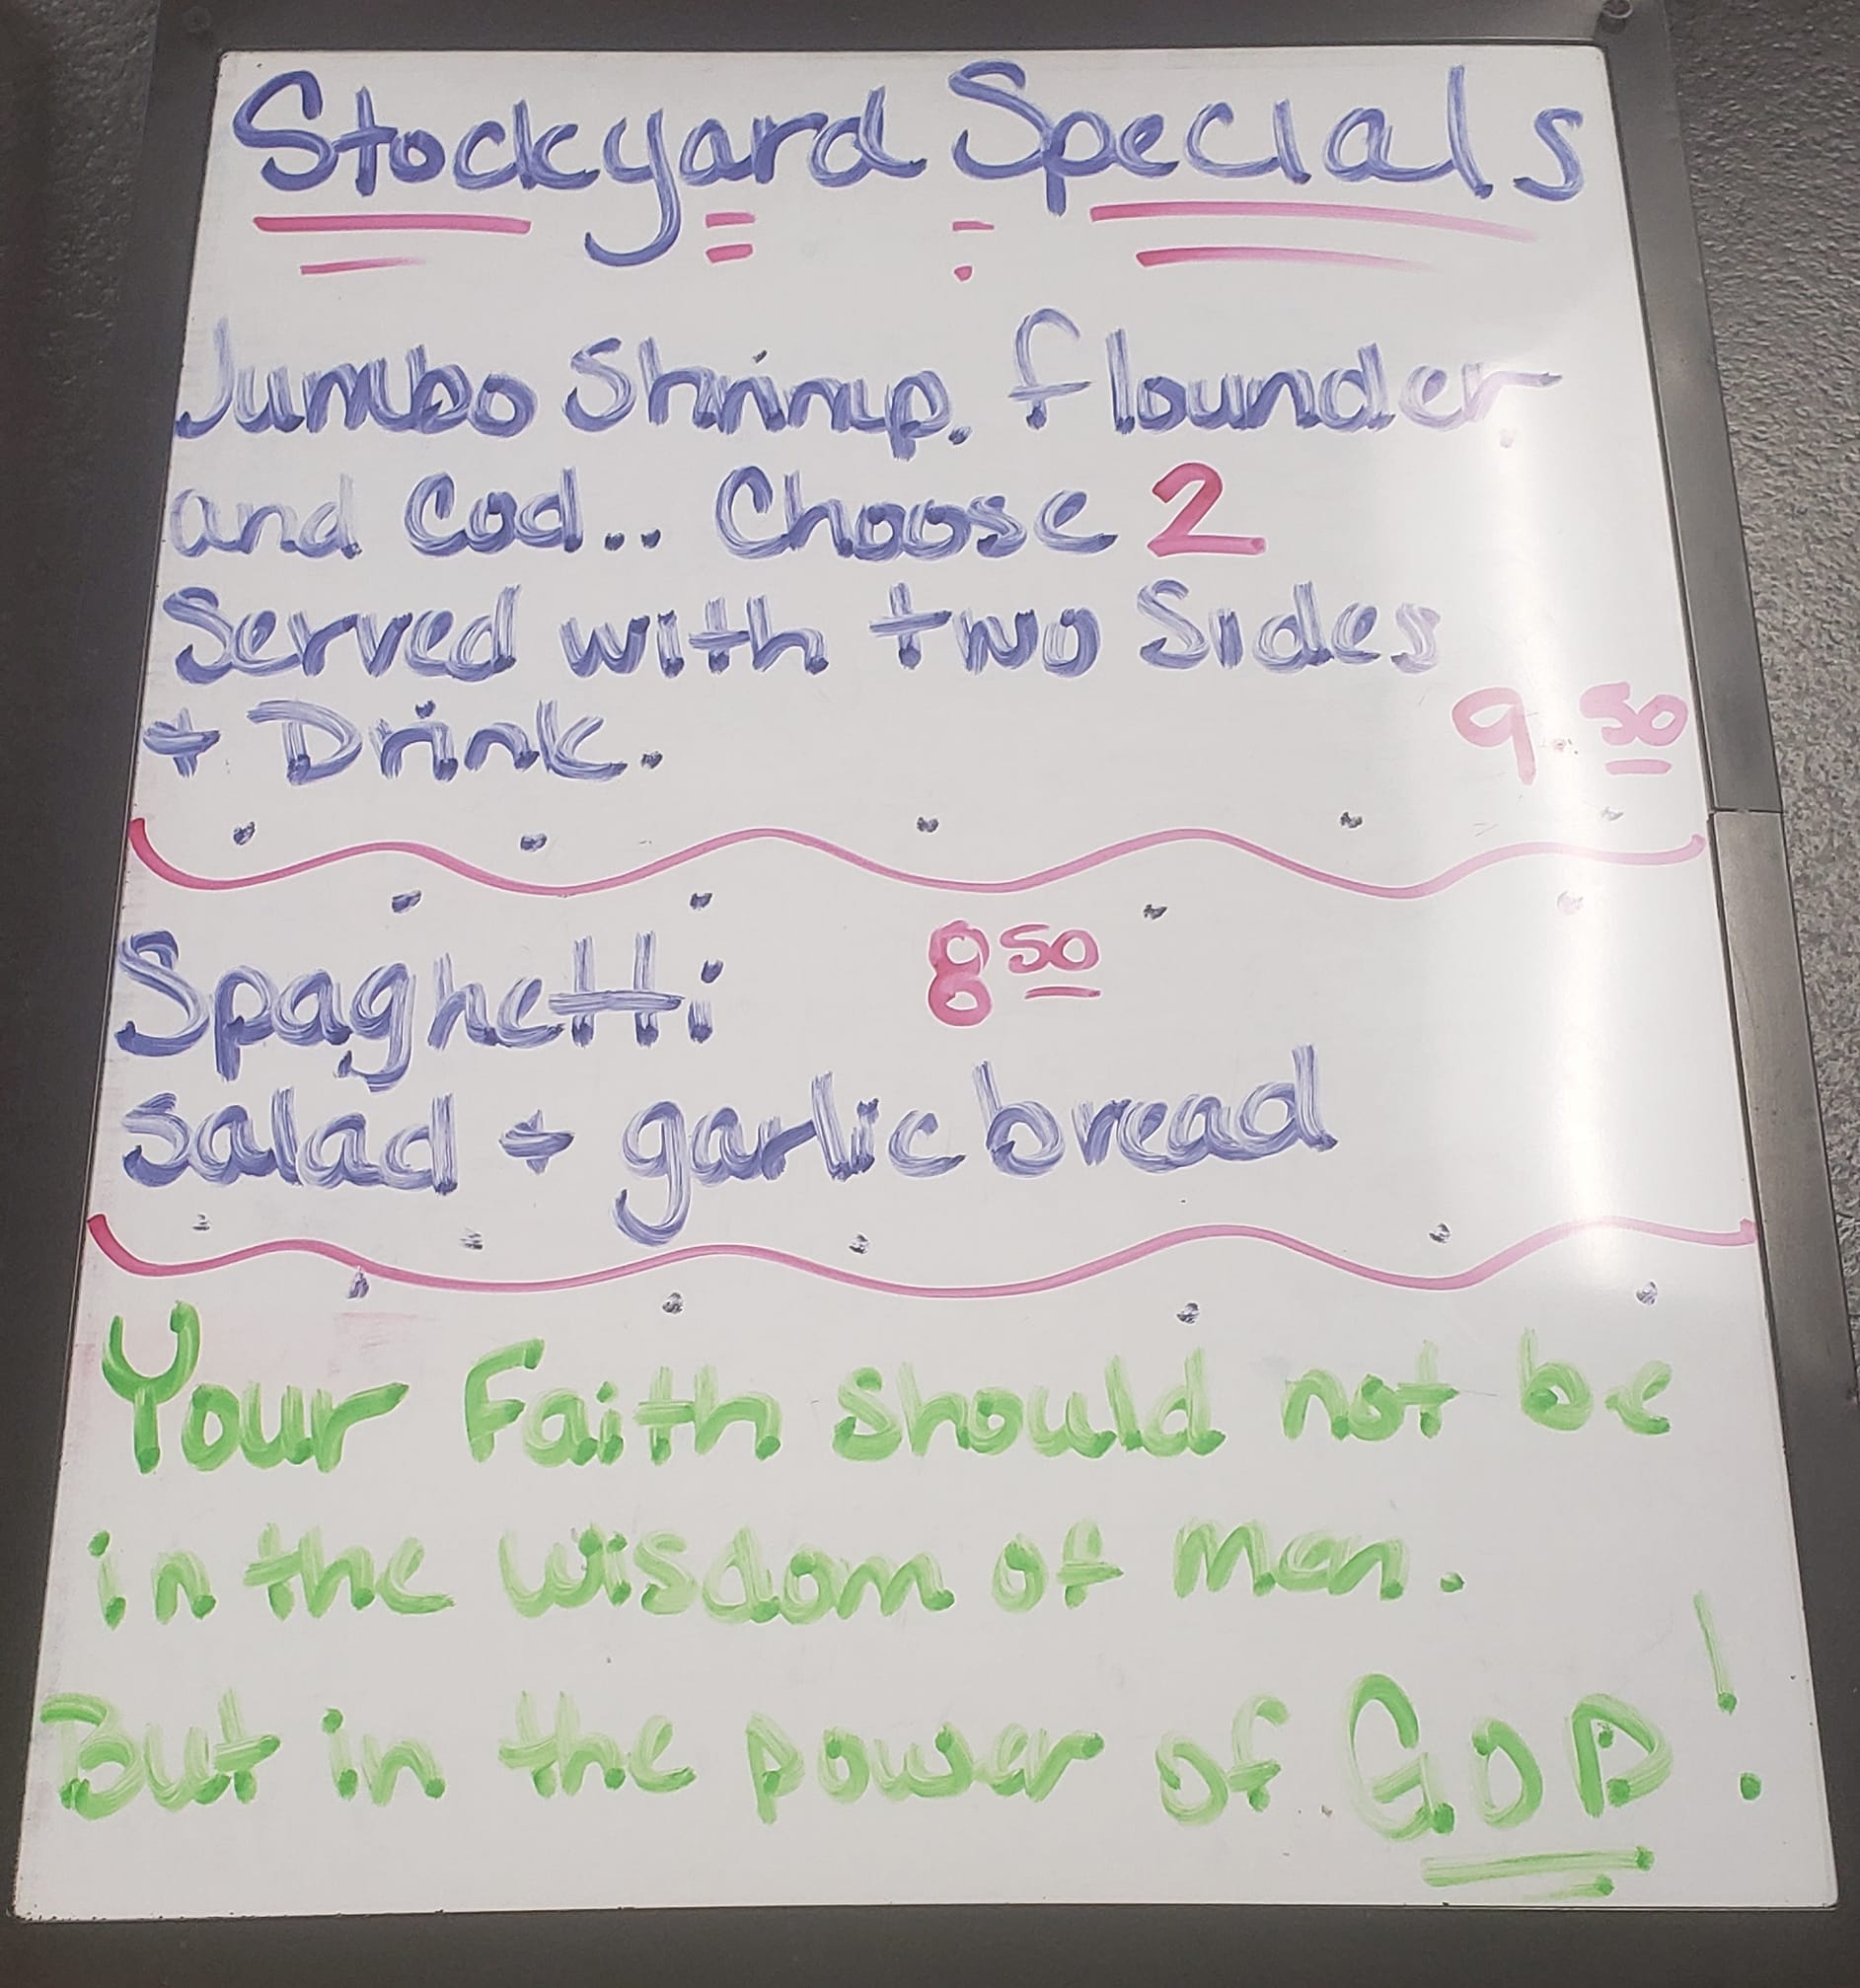 Stockyard Specials
Jumbo Shrimp, flounder
and Cod.. Choose 2
Served with two Sides
+ Drink. 9.50
Spaghetti 8 50
Salad + garlic bread
Your Faith should not be
in the wisdom of Men.
But in the power of GOD!